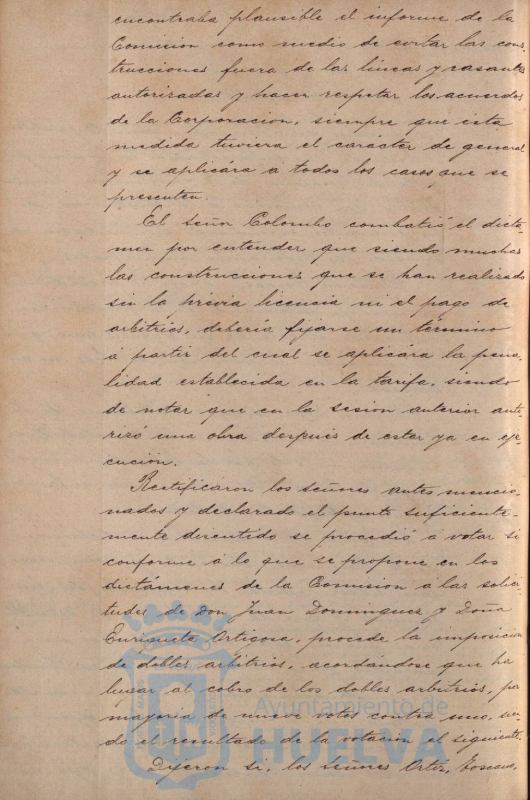 encontraba plausible el informe de la
Comision como medio de evitar las cons-
trucciones fuera de las lineas y rasantes
autorizadas y hacer respetar los acuerdos
de la Corporacion, siempre que ésta
medida tuviera el carácter de general
y se aplicára a todos los casos que se
presenten.
El Señor Colombo combatió el dictá-
men por entender que siendo muchas
las construcciones que se han realizado
sin la prévia licencia ni el pago de
arbitrios, debería fijarse un término
á partir del cual se aplicára la pena-
lidad establecida en la tarifa, siendo
de notar que en la sesion anterior auto-
rizó una obra después de estar ya en eje-
cución.
Rectificaron los señores antes mencio-
nados y declarado el punto suficiente-
mente discutido se procedió á votar si
conforme á lo que se propone en los
dictámenes de la Comision á las solici-
tudes de Don Juan Dominguez y Doña
Enriqueta Ortigosa, procede la imposicion
de dobles arbitrios, acordándose que ha
lugar al cobro de los dobles arbitrios, por
mayoria de nueve votos contra uno, sien-
do el resultado de la votacion el siguiente.
Dijeron si, los señores Ortiz, Toscano,
Ayuntamiento de
HUELVA